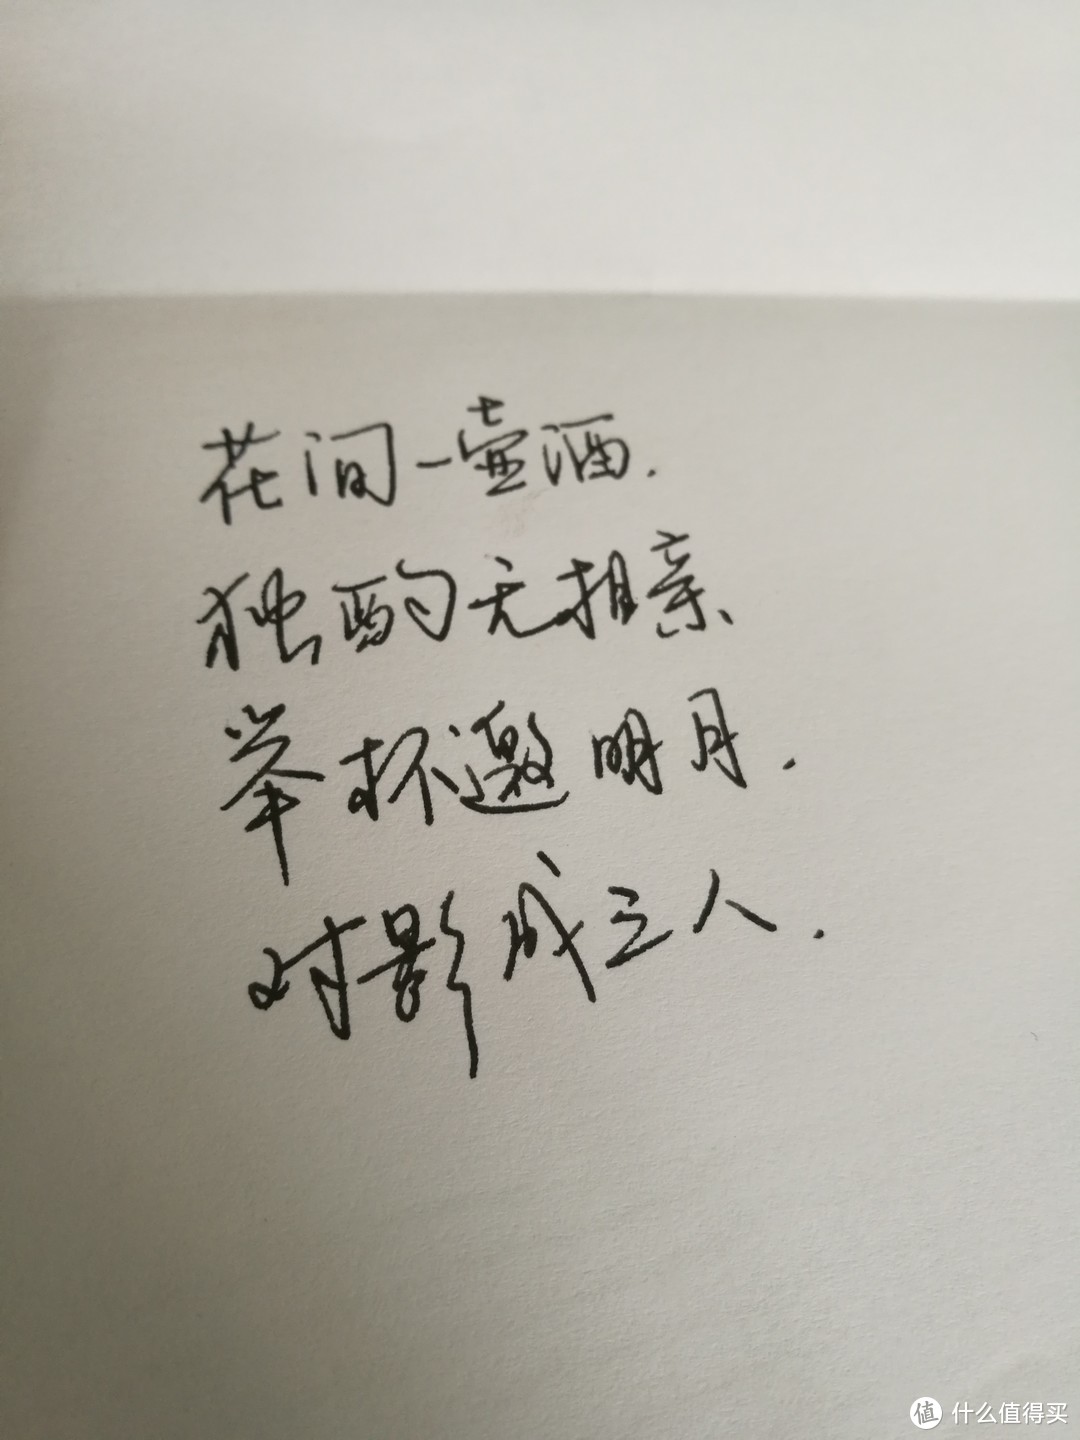 花间一壶酒.
独酌无相亲、
举杯邀明月.
对影成三人.
值 什么值得买